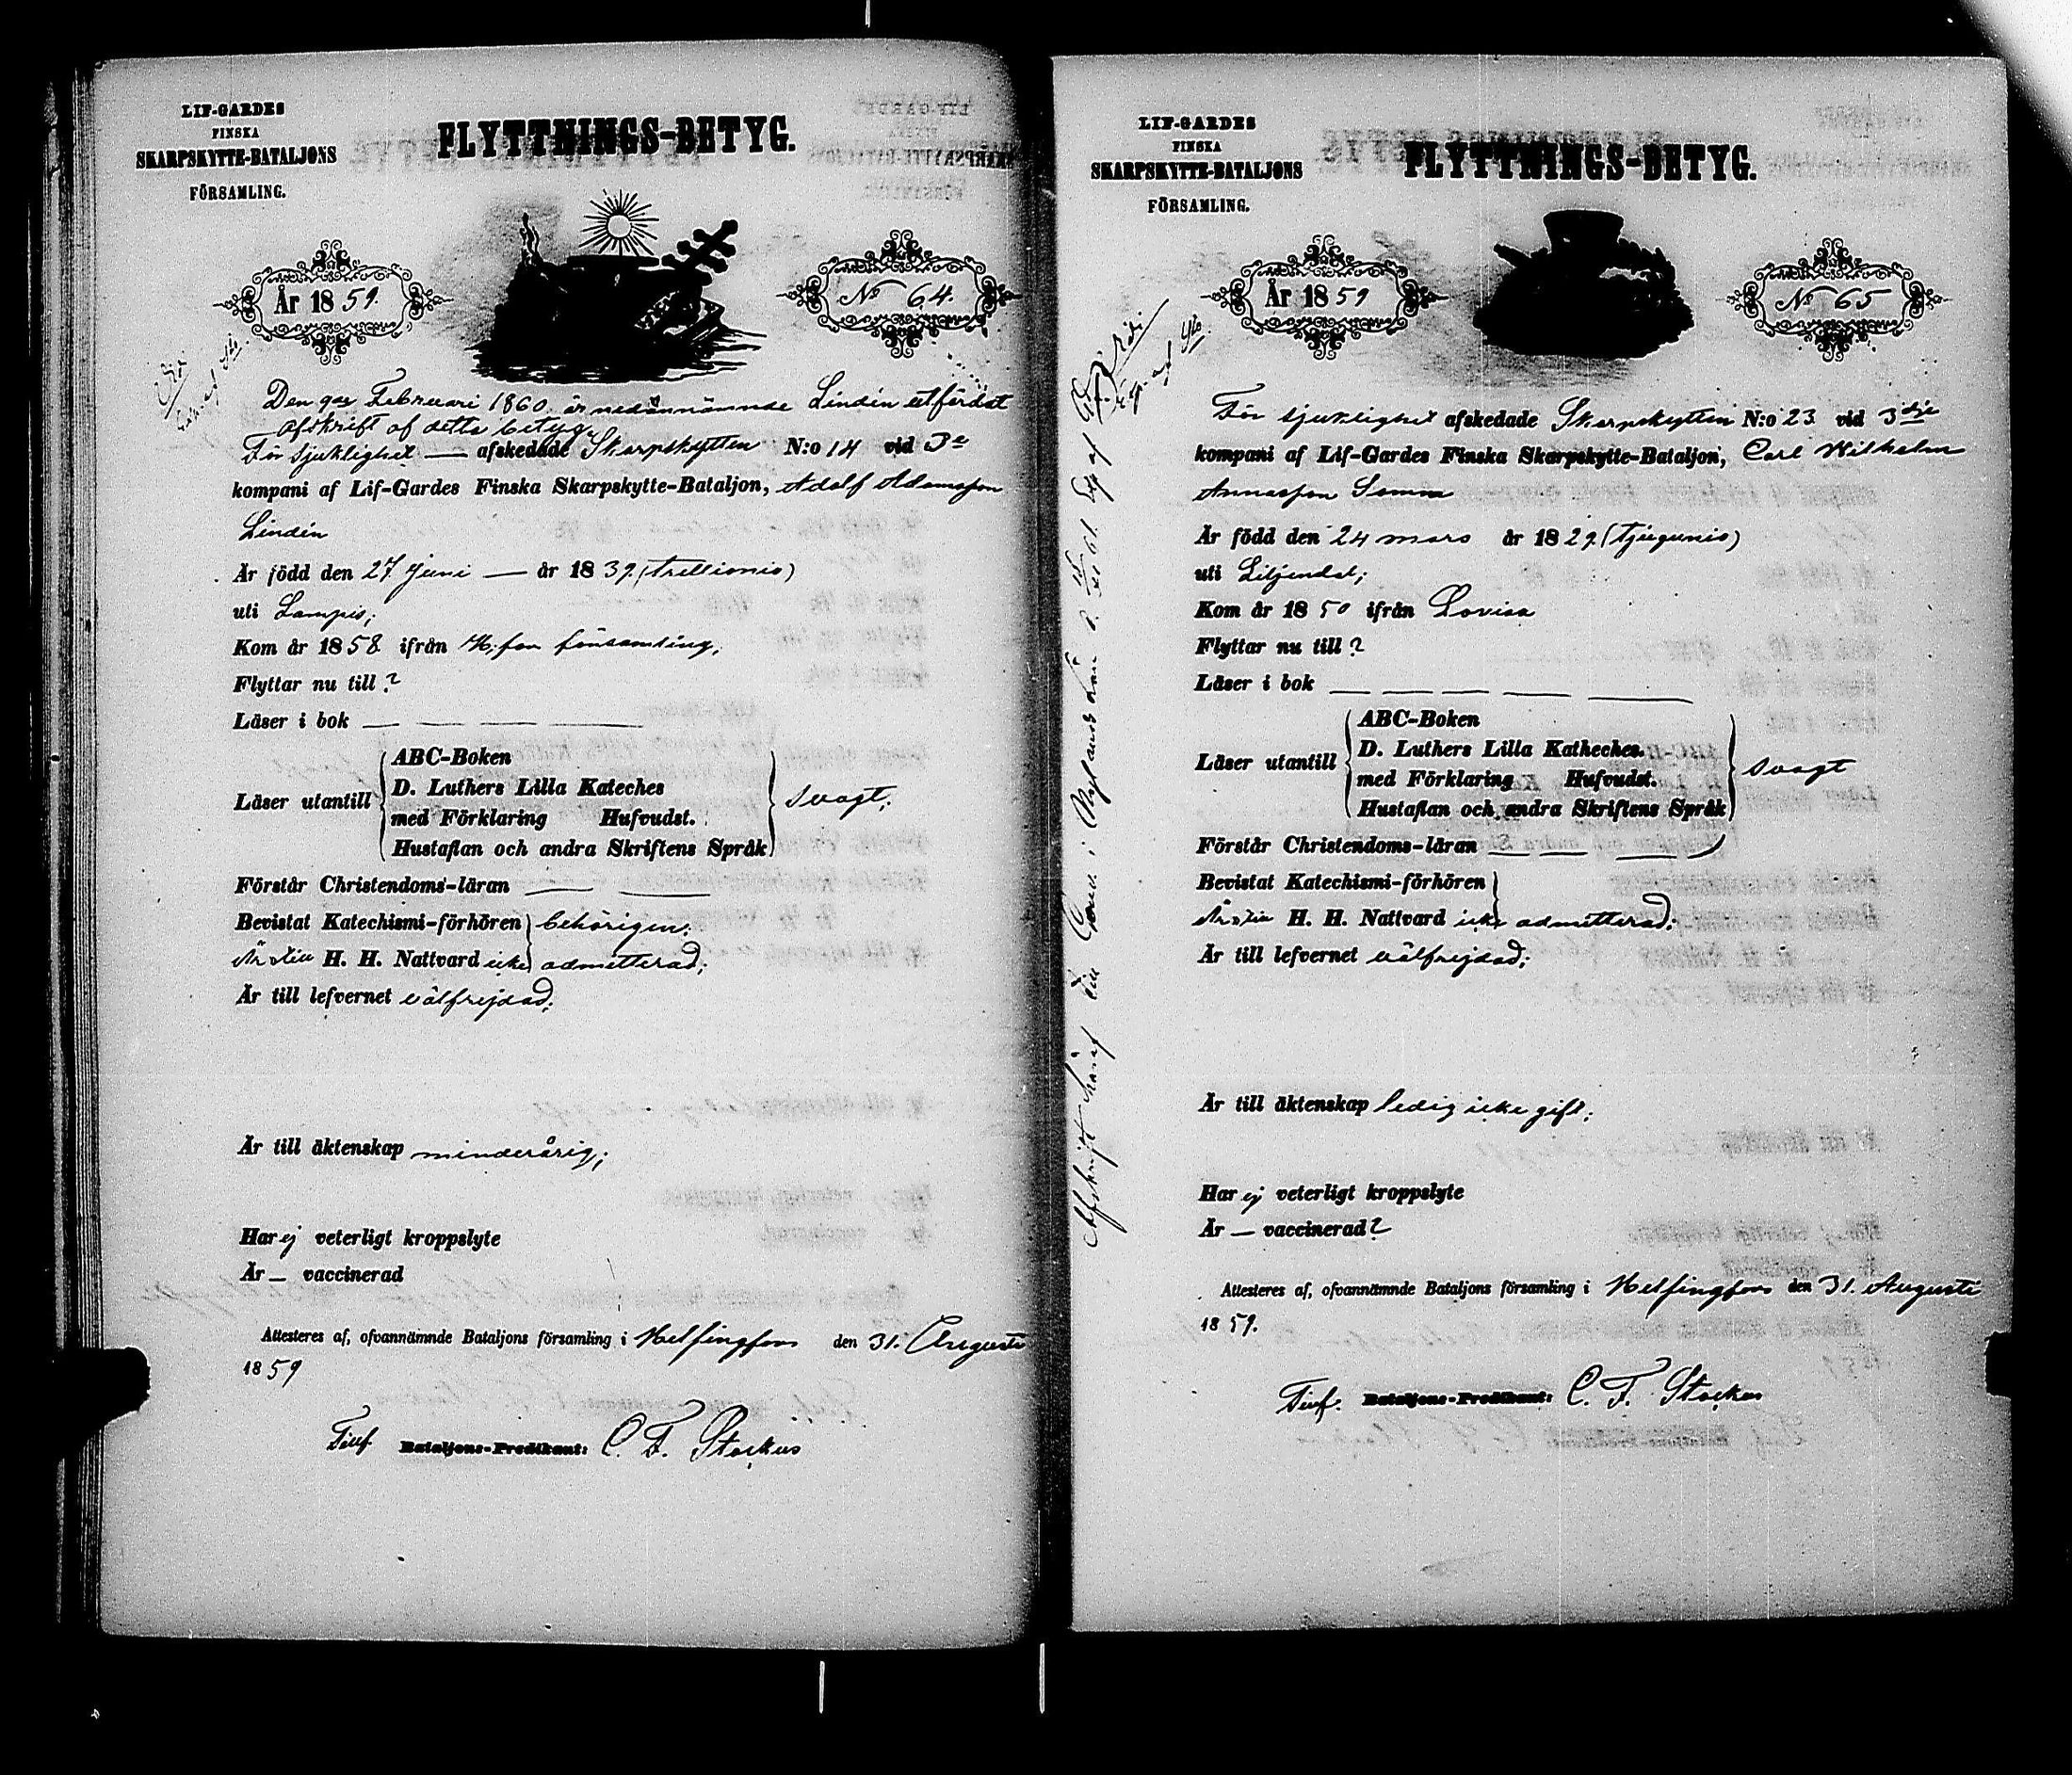 LIF-GARDES
FINSKA
SKARPSKYTTE-BATALJONS
FÖRSAMLING.
FLYTTNINGS-BETYG.
År 1859.
No 64.
Den 9de Februari 1860 är nedannämnde Lindén utfärdat
afskrift af detta betyg.
För sjuklighet — afskedade Skarpskytten N:o 14 vid 3e
kompani af Lif-Gardes Finska Skarpskytte-Bataljon, Adolf Adamsson
Lindén
Är född den 27 Juni — år 1839 (trettionio)
uti Lampis;
Kom år 1858 ifrån H:fors församling;
Flyttar nu till?
Läser i bok — — — —
Läser utantill
ABC-Boken
D. Luthers Lilla Kateches
med Förklaring Hufvudst.
Hustaflan och andra Skriftens Språk
svagt;
Förstår Christendoms-läran — —
Bevistat Katechismi-förhören behörigen;
Är till H. H. Nattvard icke admitterad;
Är till lefvernet välfrejdad;
Är till äktenskap minderårig;
Har ej veterligt kroppslyte
Är — vaccinerad
Attesteres af, ofvannämnde Bataljons församling i Helsingfors den 31. Augusti
1859
Tjuf. Bataljons-Predikant: C. F. Stockus
LIF-GARDES
FINSKA
SKARPSKYTTE-BATALJONS
FÖRSAMLING.
FLYTTNINGS-BETYG.
År 1859
No 65
För sjuklighet afskedade Skarpskytten N:o 23 vid 3dje
kompani af Lif-Gardes Finska Skarpskytte-Bataljon, Carl Wilhelm
Annasson Samm
Är född den 24 mars år 1829 (tjugunio)
uti Liljendal;
Kom år 1850 ifrån Lovisa
Flyttar nu till?
Läser i bok — — — — —
Läser utantill
ABC-Boken
D. Luthers Lilla Katheches.
med Förklaring Hufvudst.
Hustaflan och andra Skriftens Språk
svagt
Förstår Christendoms-läran — — —
Bevistat Katechismi-förhören
Är till H. H. Nattvard icke admitterad;
Är till lefvernet välfrejdad;
Är till äktenskap ledig icke gift;
Har ej veterligt kroppslyte
Är — vaccinerad?
Attesteres af, ofvannämnde Bataljons församling i Helsingfors den 31. Augusti
1859.
Tjuf. Bataljons-Predikant: C. F. Stockus